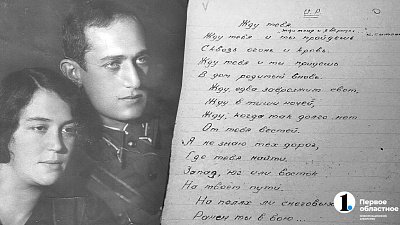 Жду тебя.
Жду тебя и ты пройдешь
Сквозь огонь и кровь.
Жду тебя и ты придешь
В дом родимый вновь.
Жду, едва забрезжит свет,
Жду в тиши ночей,
Жду, когда так долго нет
От тебя вестей.
Я не знаю тех дорог,
Где тебя найти.
Запад, юг или восток
На твоем пути.
На полях ли снеговых
Ранен ты в бою...
1.
Первое
областное